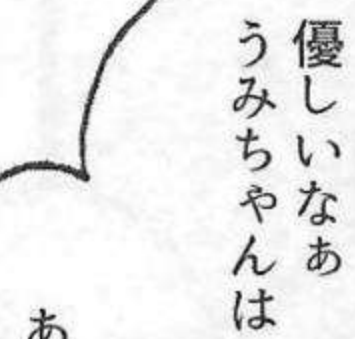 優しいなぁ
うみちゃんは
あ